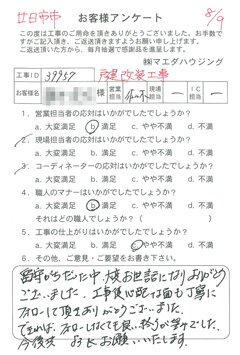 廿日市市
お客様アンケート
8/9
この度は工事のご用命を頂きありがとうございました。お手数で
すがご記入頂き、ご返送頂きますようお願い申し上げます。
ご返送頂いた方から、毎月抽選で感謝品を進呈します。
㈱マエダハウジング
工事ID 39957 改装工事
お客様名 様 営業担当 現場担当 ー IC担当 ー
1. 営業担当者の応対はいかがでしたでしょうか?
a. 大変満足 b. 満足 c. やや不満 d. 不満
2. 現場担当者の応対はいかがでしたでしょうか?
a. 大変満足 b. 満足 c. やや不満 d. 不満
3. コーディネーターの応対はいかがでしたでしょうか?
a. 大変満足 b. 満足 c. やや不満 d. 不満
4. 職人のマナーはいかがでしたでしょうか?
a. 大変満足 b. 満足 c. やや不満 d. 不満
それはどの職人でしょうか?(
5. 工事の仕上がりはいかがでしたでしょうか?
a. 大変満足 b. 満足 c. やや不満 d. 不満
6. その他、ご意見・ご要望をお書き下さい。
留守がちだった中、大変お世話になりありがとう
ございました。工事後心配な面も丁寧に
フォローして頂きありがとうございました。
できれば、フォローしなくても良い
今後共 お願いいたします。